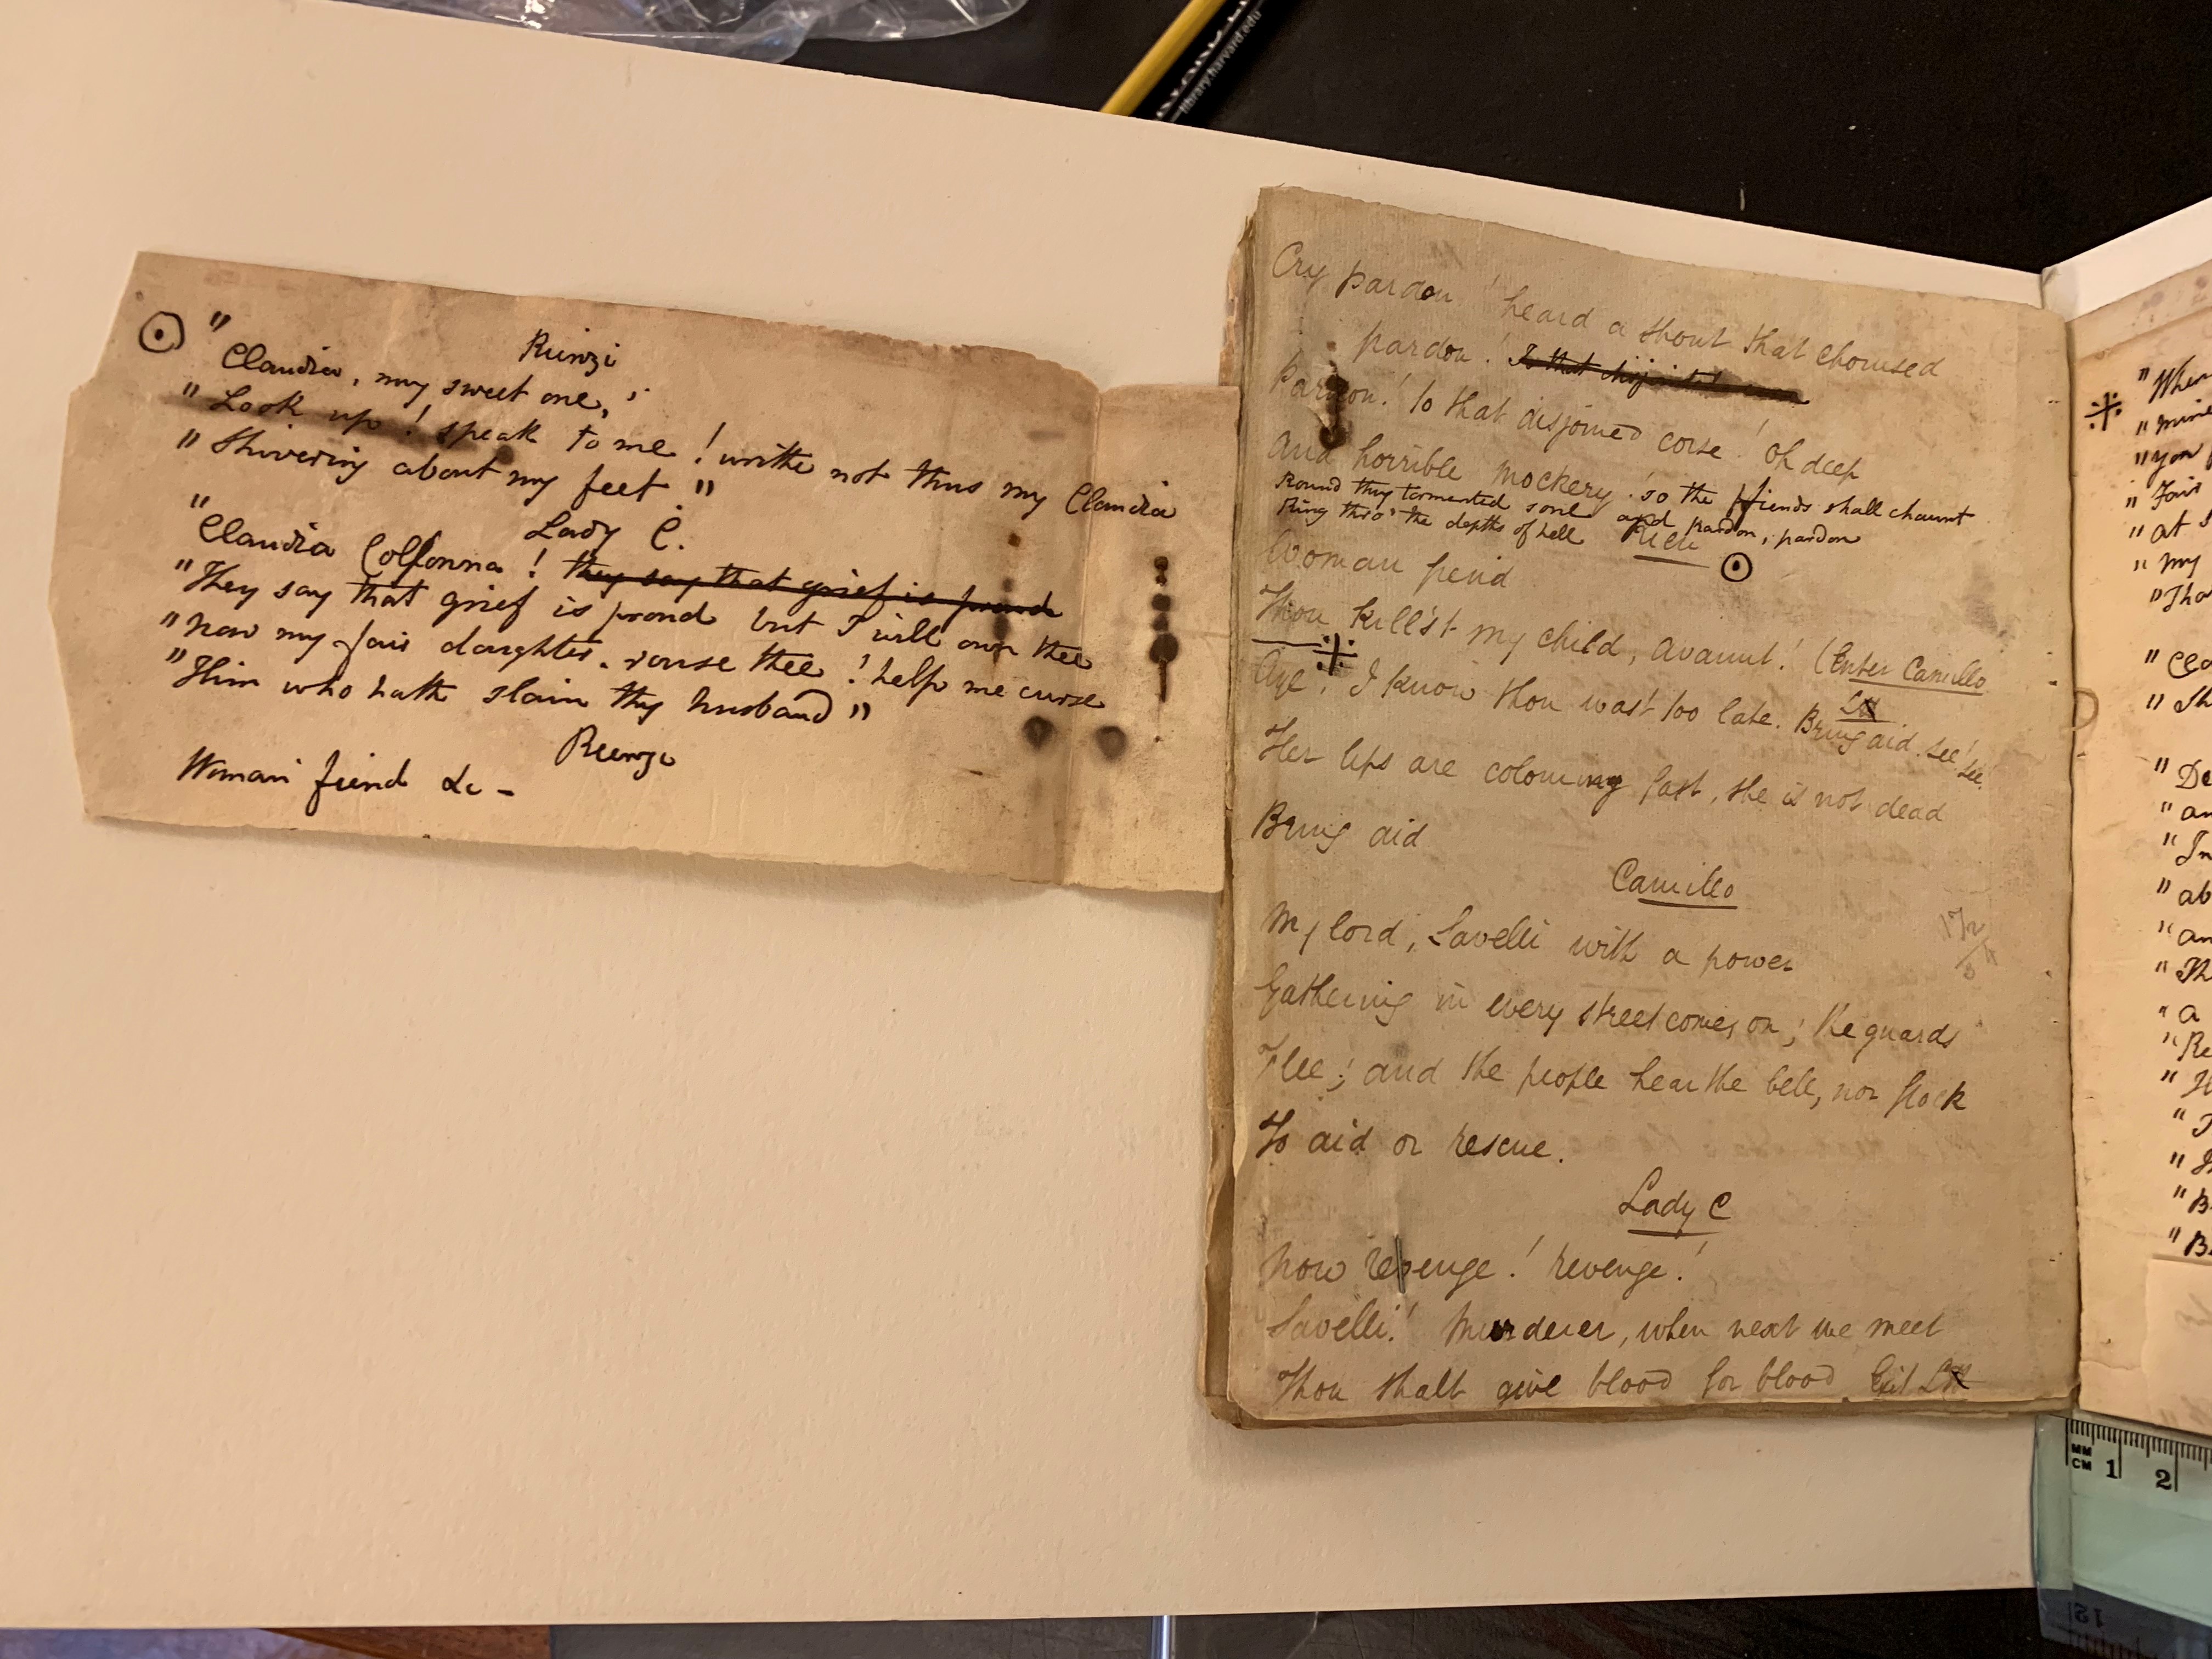 library.harvard.edu
⊙ Rienzi
"Claudia, my sweet one,
"Look up! speak to me! writhe not thus my Claudia
"Shivering about my feet"
Lady C.
"Claudia Collonna! they say that grief is proud
"They say that grief is proud but I will own thee
"Now my fair daughter. rouse thee! help me curse
"Him who hath slain thy husband"
Rienzi
Woman fiend &c -
Cry pardon! heard a shout that chorused
pardon! To that
Pardon! to that disjoined corse! Oh deep
And horrible mockery! so the fiends shall chaunt
Round thy tormented soul and pardon, pardon
Ring thro' the depths of hell
Rien ⊙
Woman fiend
Thou kill'st my child, avaunt! (Enter Camillo
Aye, I know thou wast too late. Bring aid. see! see!
Her lips are colouring fast, she is not dead
Bring aid
Camillo
My lord, Savelli with a power
Gathering in every street comes on; the guards
Flee; and the people hear the bell, nor flock
To aid or rescue.
Lady C
Now revenge! revenge!
Savelli! Murderer, when next we meet
Thou shalt give blood for blood. Exit
"When
"mine
"you
"Fair
"at
"my
"Tha
"Cla
"Th
"De
"an
"In
"ab
"an
"Th
"a
"Re
"H
"B
"B
MM
CM 1 2